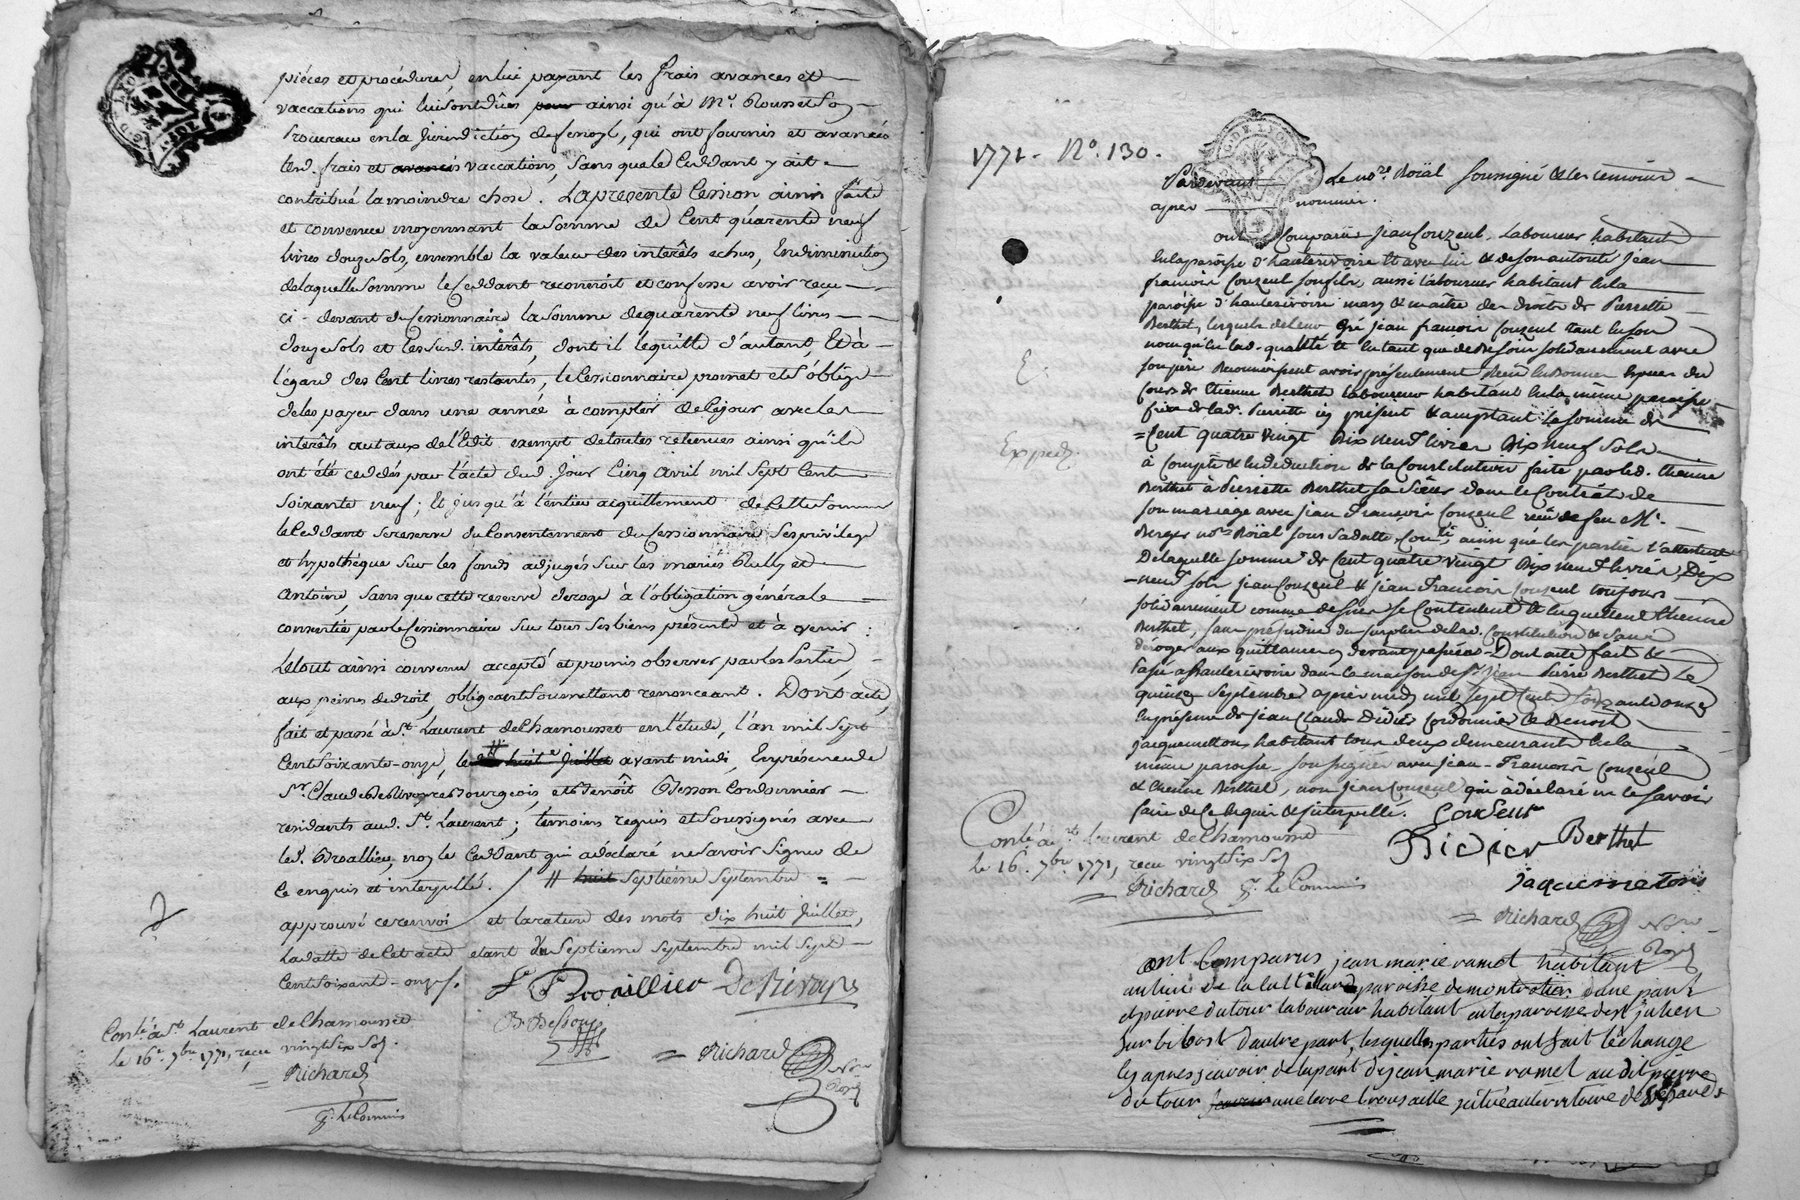 piéces et procédures, en lui payant les frais avances et
vaccations qui lui sont dûes pour ainsi qu'à Mr. Rousset son
Procureur en la Jurisdiction de senoyl, qui ont fournis et avancés
lesd. frais et avancés vaccations, sans que le Ceddant y ait
contribué la moindre chose. La presente Cession ainsi faite
et convenue moyennant la somme de Cent quarente neuf
livres douze sols, ensemble la valeur des intérêts echus, En diminution
de laquelle somme le Ceddant reconnoit et confesse avoir reçu
ci-devant du Cessionnaire la somme de quarente neuf livres
douze sols et les susd. intérêts, dont il le quitte d'autant, Et à
l'égard des Cent livres restantes, le Cessionnaire promet et s'oblige
de les payer dans une année à compter de ce jour avec les
intérêts au taux de l'Edit exempt de toutes retenues ainsi qu'ils
ont été ceddés par l'acte dud. jour Cinq Avril mil Sept Cent
soixante neuf; Et jusqu'à l'entier acquittement de cette somme
le Ceddant se reserve du Consentement du Cessionnaire ses privilége
et hypothéque sur les fonds adjugés sur les mariés Clully et
Antoine, sans que cette reserve deroge à l'obligation générale
consentie par le Cessionnaire sur tous ses biens présents et à venir:
Le tout ainsi convenu accepté et promis observer par les Parties,
aux peines de droit, obligeant soumettant renonceant. Dont acte,
fait et passé à St. Laurent de Chamousset en l'étude, l'an mil sept
Cent soixante-onze, le huit juillet avant midi, En présence de
Sr. Claude De Rivoyre Bourgeois, et de Benoît Besson Cordonnier
residants aud. St. Laurent; témoins requis et soussignés avec
led. Broallier, non le Ceddant qui a déclaré ne savoir signer de
ce enquis et interpellé. / # huit septiéme septembre =
approuvé ce renvoi et la rature des mots dix huit juillet,
La datte de cet acte etant du septieme septembre mil sept
Cent soixant-onze.
Broaillier DeRivoyre
B. Besson
Conlé. à St. Laurent de Chamousset
le 16e. 7bre 1771, reçu vingt six sols.
= Richard
p. Le Commis
= Richard
Nore
Royal
1771. No. 130.
Pardevant Le nore. Roïal soussigné & les temoins
apres nommés.
ont Comparus Jean Couzeul, Laboureur habitant
en la paroisse d'hauterivoire Et avec lui & de son autorité Jean
francois Couzeul son fils, aussi laboureur habitant en la
paroisse d'hauterivoire mary & maître des droits de Pierrette
Berthet, lesquels de leur gré jean francois Couzeul tant en son
nom qu'en lad. qualité Et en tant que de Besoin solidairement avec
son pere Reconnoissent avoir présentement Reçu en Bonnes Especes du
Cours de Etienne Berthet laboureur habitant en la même paroisse
frere de lad. Pierrette icy présent & acceptant la somme de
Cent quatre vingt Dix neuf livres Dix neuf sols
à Compte & en deduction de la Constitution faite par led. Etienne
Berthet à Pierrette Berthet sa Sœur dans le Contrat de
son mariage avec jean francois Couzeul reçu de feu Me.
Berger nore Roïal sous sa datte, ainsi que les parties l'attestent
De laquelle somme de Cent quatre vingt Dix neuf livres Dix
neuf sols jean Couzeul & jean francois Couzeul toujours
solidairement comme dessus se Contentent & en quittent Etienne
Berthet, sans préjudice du surplus de lad. Constitution & sans
déroger aux quittances cy devant passées. Dont acte fait &
Passé a Hauterivoire dans la maison de Sr. jean Pierre Berthet Le
quinze septembre apres midy mil sept Cent soixante onze
En présence de jean Claude Didier Cordonnier & Benoit
jacquemetton habitant tous deux demeurants en la
même paroisse soussignés avec jean-francois Couzeul
& Etienne Berthet, non jean Couzeul qui à déclaré ne le savoir
faire de ce enquis & interpellé. Couseul
Didier Berthet
jaquemeton
Conlé. à St. Laurent de Chamousset
le 16. 7bre 1771, reçu vingt six sols
= Richard p. Le Commis
= Richard Nore
Royal
E.
Expedz.
ont Comparus jean marie ramel habitant
au lieu de la paroisse de montrotier dune part
et pierre du tour laboureur habitant en la paroisse de st julien
sur bibost d'autre part, lesquelles parties ont fait l'echange
cy apres scavoir de la part dy jean marie ramel au dit pierre
du tour une terre